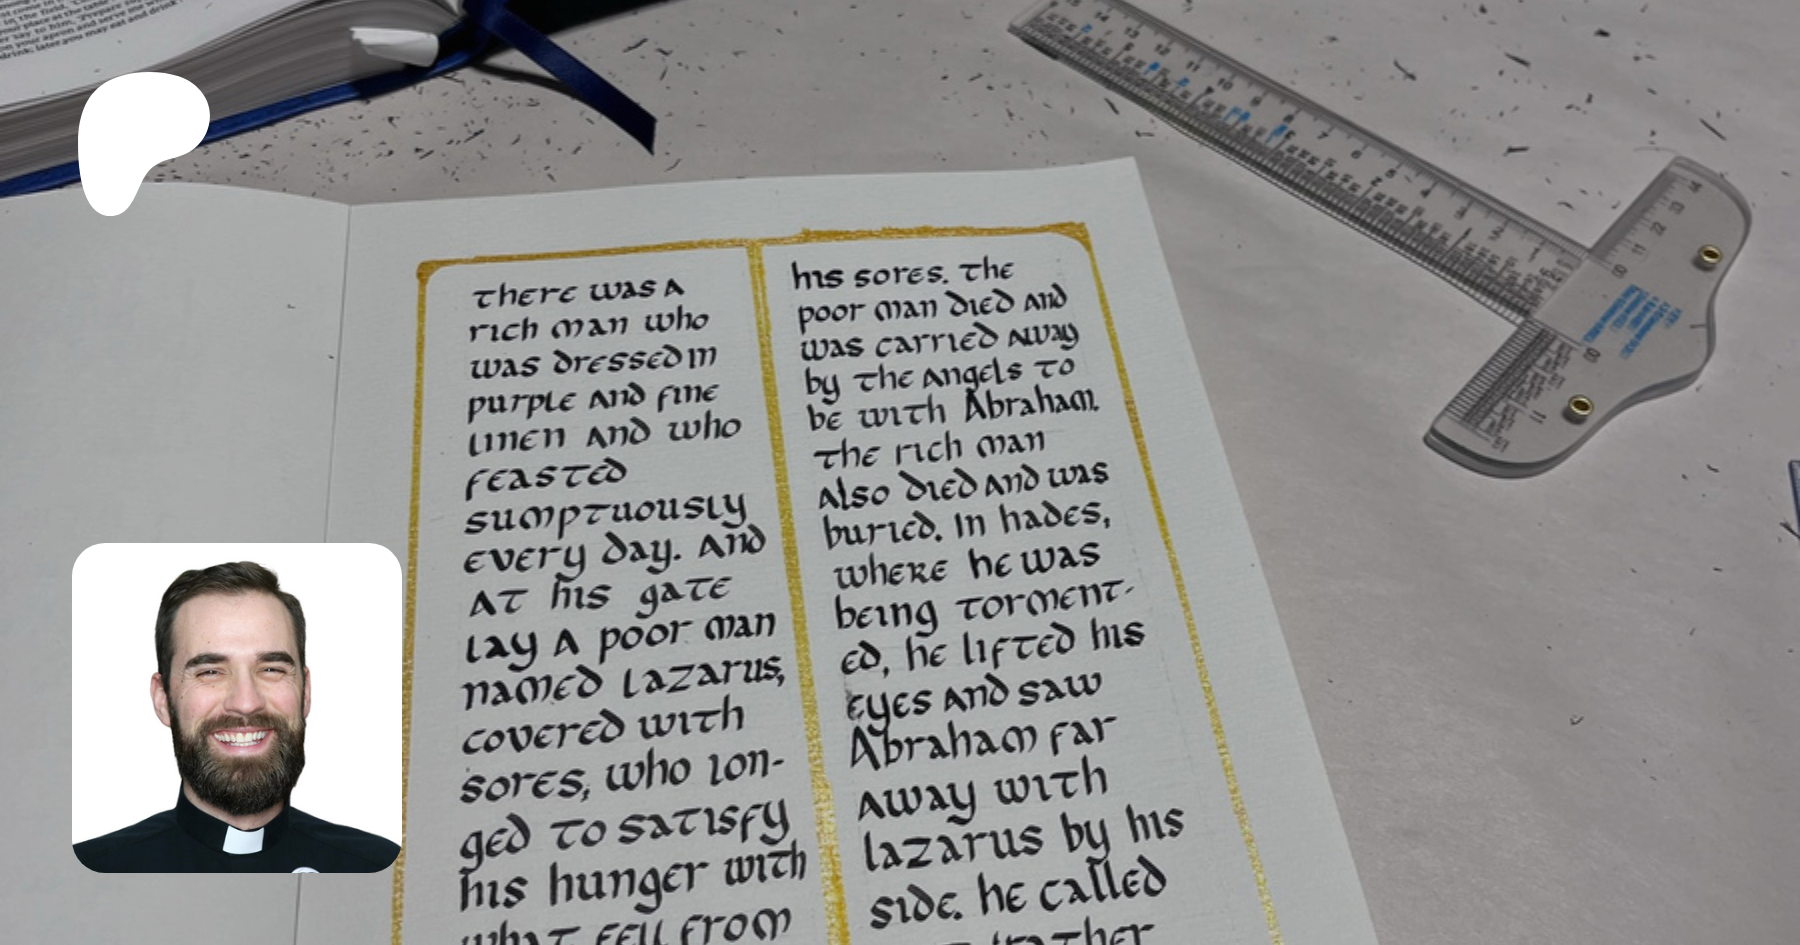 There was a
rich man who
was dressed in
purple and fine
linen and who
feasted
sumptuously
every day. And
at his gate
lay a poor man
named Lazarus,
covered with
sores, who lon-
ged to satisfy
his hunger with
what fell from
his sores. The
poor man died and
was carried away
by the angels to
be with Abraham.
The rich man
also died and was
buried. In hades,
where he was
being torment-
ed, he lifted his
eyes and saw
Abraham far
away with
Lazarus by his
side. He called